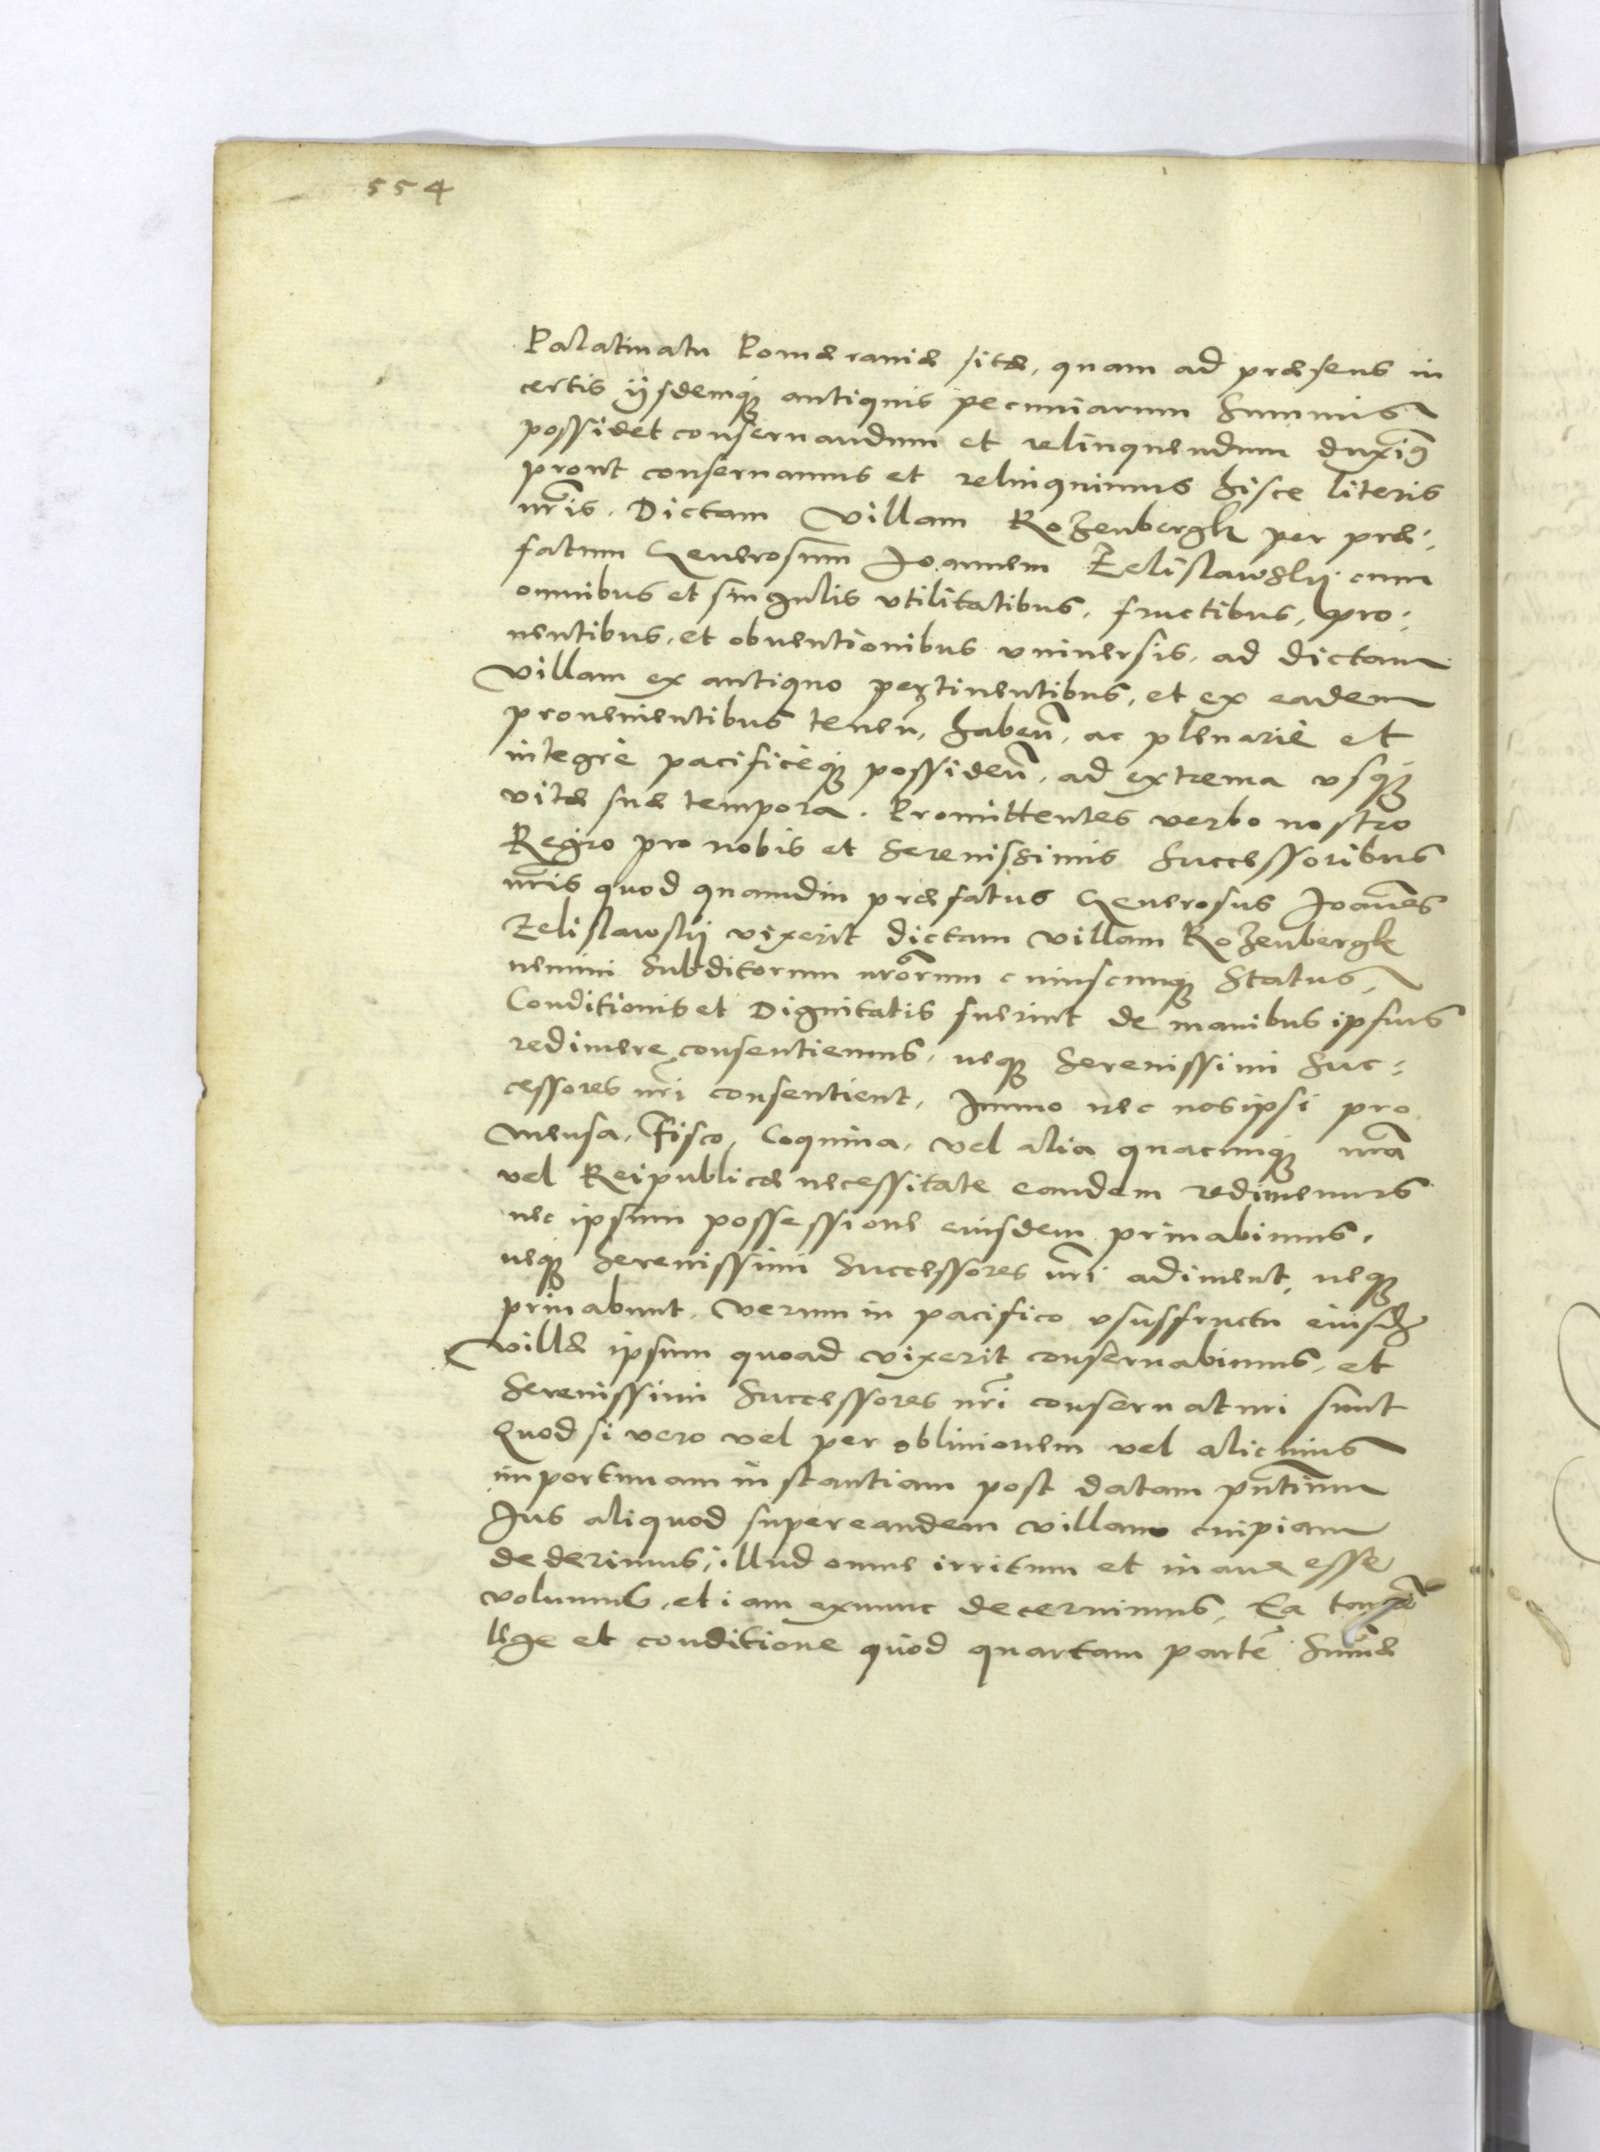 554
Palatinatu Pomæraniæ sitæ, quam ad præsens in
certis ijsdemq; antiquis pecuniarum Summis
possidet conseruandum et relinquendum duxim9
prout conseruamus et relinquimus hisce literis
nris. Dictam Villam Rozenbergk per præ:
fatum Generosum Joannem Zelislawskij cum
omnibus et singulis vtilitatibus, fructibus, pro:
uentibus, et obuentionibus vniuersis, ad dictam
Villam ex antiquo pertinentibus, et ex eadem
prouenientibus tenen, haben, ac plenariè et
integrè pacificèq; possiden, ad extrema vsq;
vitæ suæ tempora. Promittentes verbo nostro
Regio pro nobis et Serenissimis Successoribus
nris quod quamdiu præfatus Generosus Joanes
Zelislawskij vixerit dictam villam Rozenbergk
nemini Subditorum nrorum cuiuscunq; Status,
Conditionis et Dignitatis fuerint de manibus ipsius
redimere consentiemus, neq; Serenissimi Suc:
cessores nri consentient. Immo nec nos ipsi pro
Mensa, Fisco, Coquina, vel alia quacunq; nra
vel Reipublicæ necessitate eandem redimemus
nec ipsum possessione eiusdem priuabimus,
neq; Serenissimi Successores nri adiment, neq;
priuabunt. Verum in pacifico vsusfructu eiusd
Villæ ipsum quoad vixerit conseruabimus, et
Serenissimi Successores nri conseruaturi sunt
Quod si vero vel per obliuionem vel alicuius
importunam instantiam post datam pntium
Jus aliquod super eandem villam cuipiam
dederimus, illud omne irritum et inane esse
volumus, et iam exnunc decernimus. Ea tamen
lege et conditione quod quartam parte Sumæ